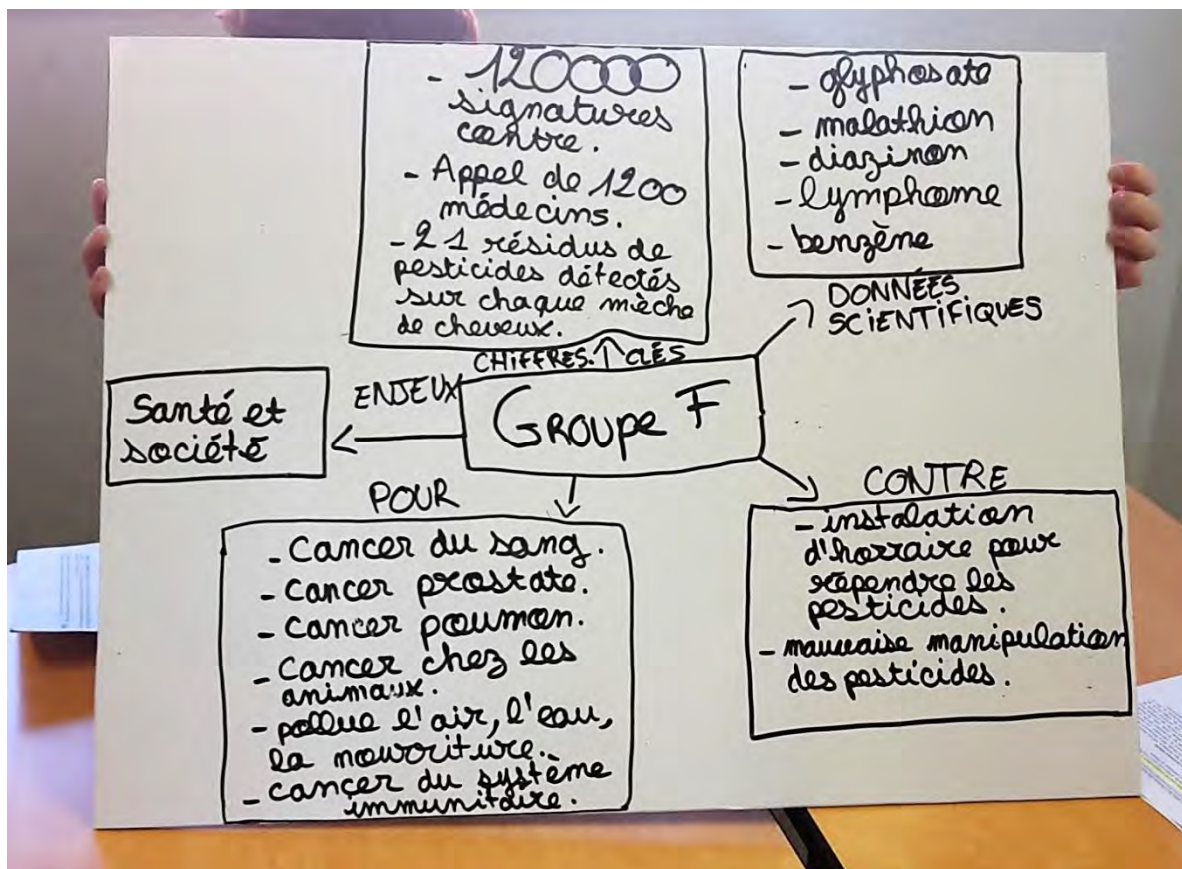 - 120000
signatures
contre.
- Appel de 1200
médecins.
- 21 résidus de
pesticides détectés
sur chaque mèche
de cheveux.
CHIFFRES CLÉS
- glyphosate
- malathion
- diazinon
- lymphome
- benzène
DONNÉES
SCIENTIFIQUES
ENJEUX
Santé et
société
GROUPE F
POUR
- Cancer du sang.
- Cancer prostate.
- Cancer poumon.
- Cancer chez les
animaux.
- pollue l'air, l'eau,
la nouoriture.
- cancer du système
immunitaire.
CONTRE
- instalation
d'horraire pour
répendre les
pesticides.
- mauvaise manipulation
des pesticides.